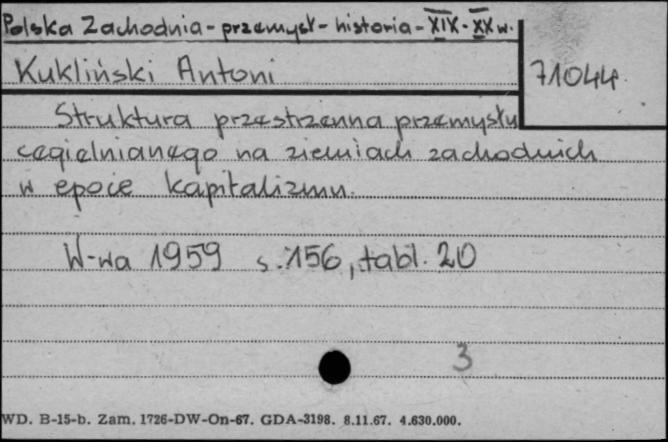 Polska Zachodnia - przemysł - historia - XIX - XX w.
Kukliński Antoni
71044
Struktura przestrzenna przemysłu
cegielnianego na ziemiach zachodnich
w epoce kapitalizmu.
W-wa 1959 s. 156, tabl. 20
3
WD. B-15-b. Zam. 1726-DW-On-67. GDA-3198. 8.11.67. 4.630.000.